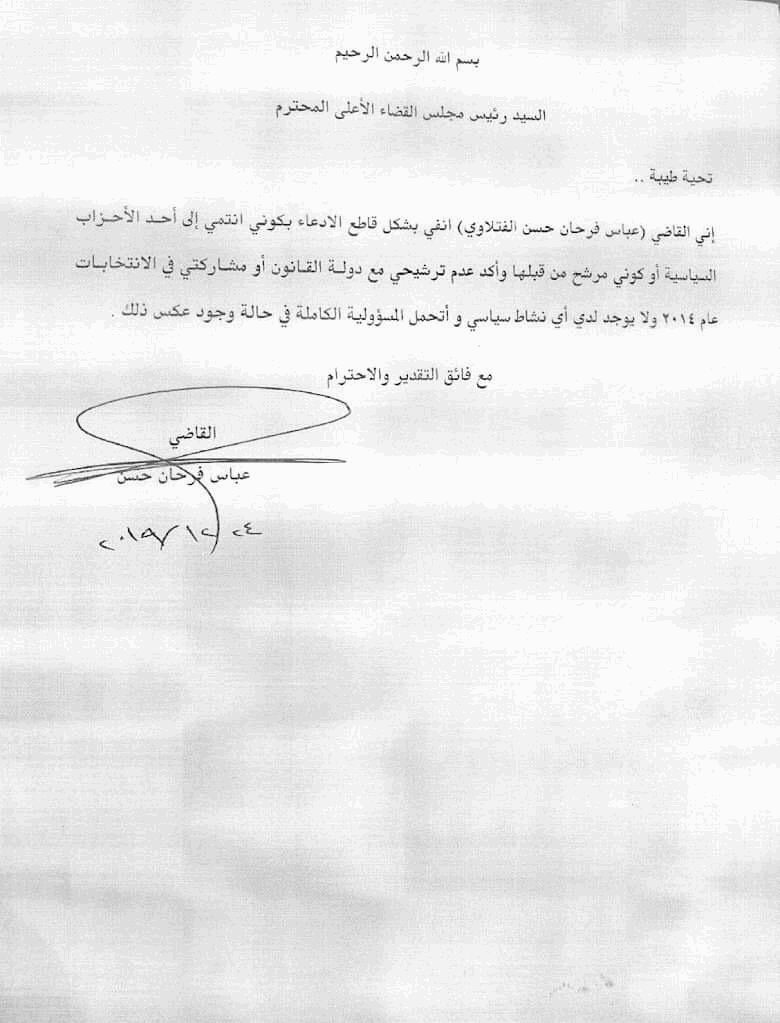 بسم الله الرحمن الرحيم
السيد رئيس مجلس القضاء الأعلى المحترم
تحية طيبة ..
إني القاضي (عباس فرحان حسن الفتلاوي) انفي بشكل قاطع الادعاء بكوني انتمي إلى أحد الأحزاب
السياسية أو كوني مرشح من قبلها وأكد عدم ترشيحي مع دولة القانون أو مشاركتي في الانتخابات
عام ٢٠١٤ ولا يوجد لدي أي نشاط سياسي و أتحمل المسؤولية الكاملة في حالة وجود عكس ذلك .
مع فائق التقدير والاحترام
القاضي
عباس فرحان حسن
٢٤/١٢/٢٠١٩